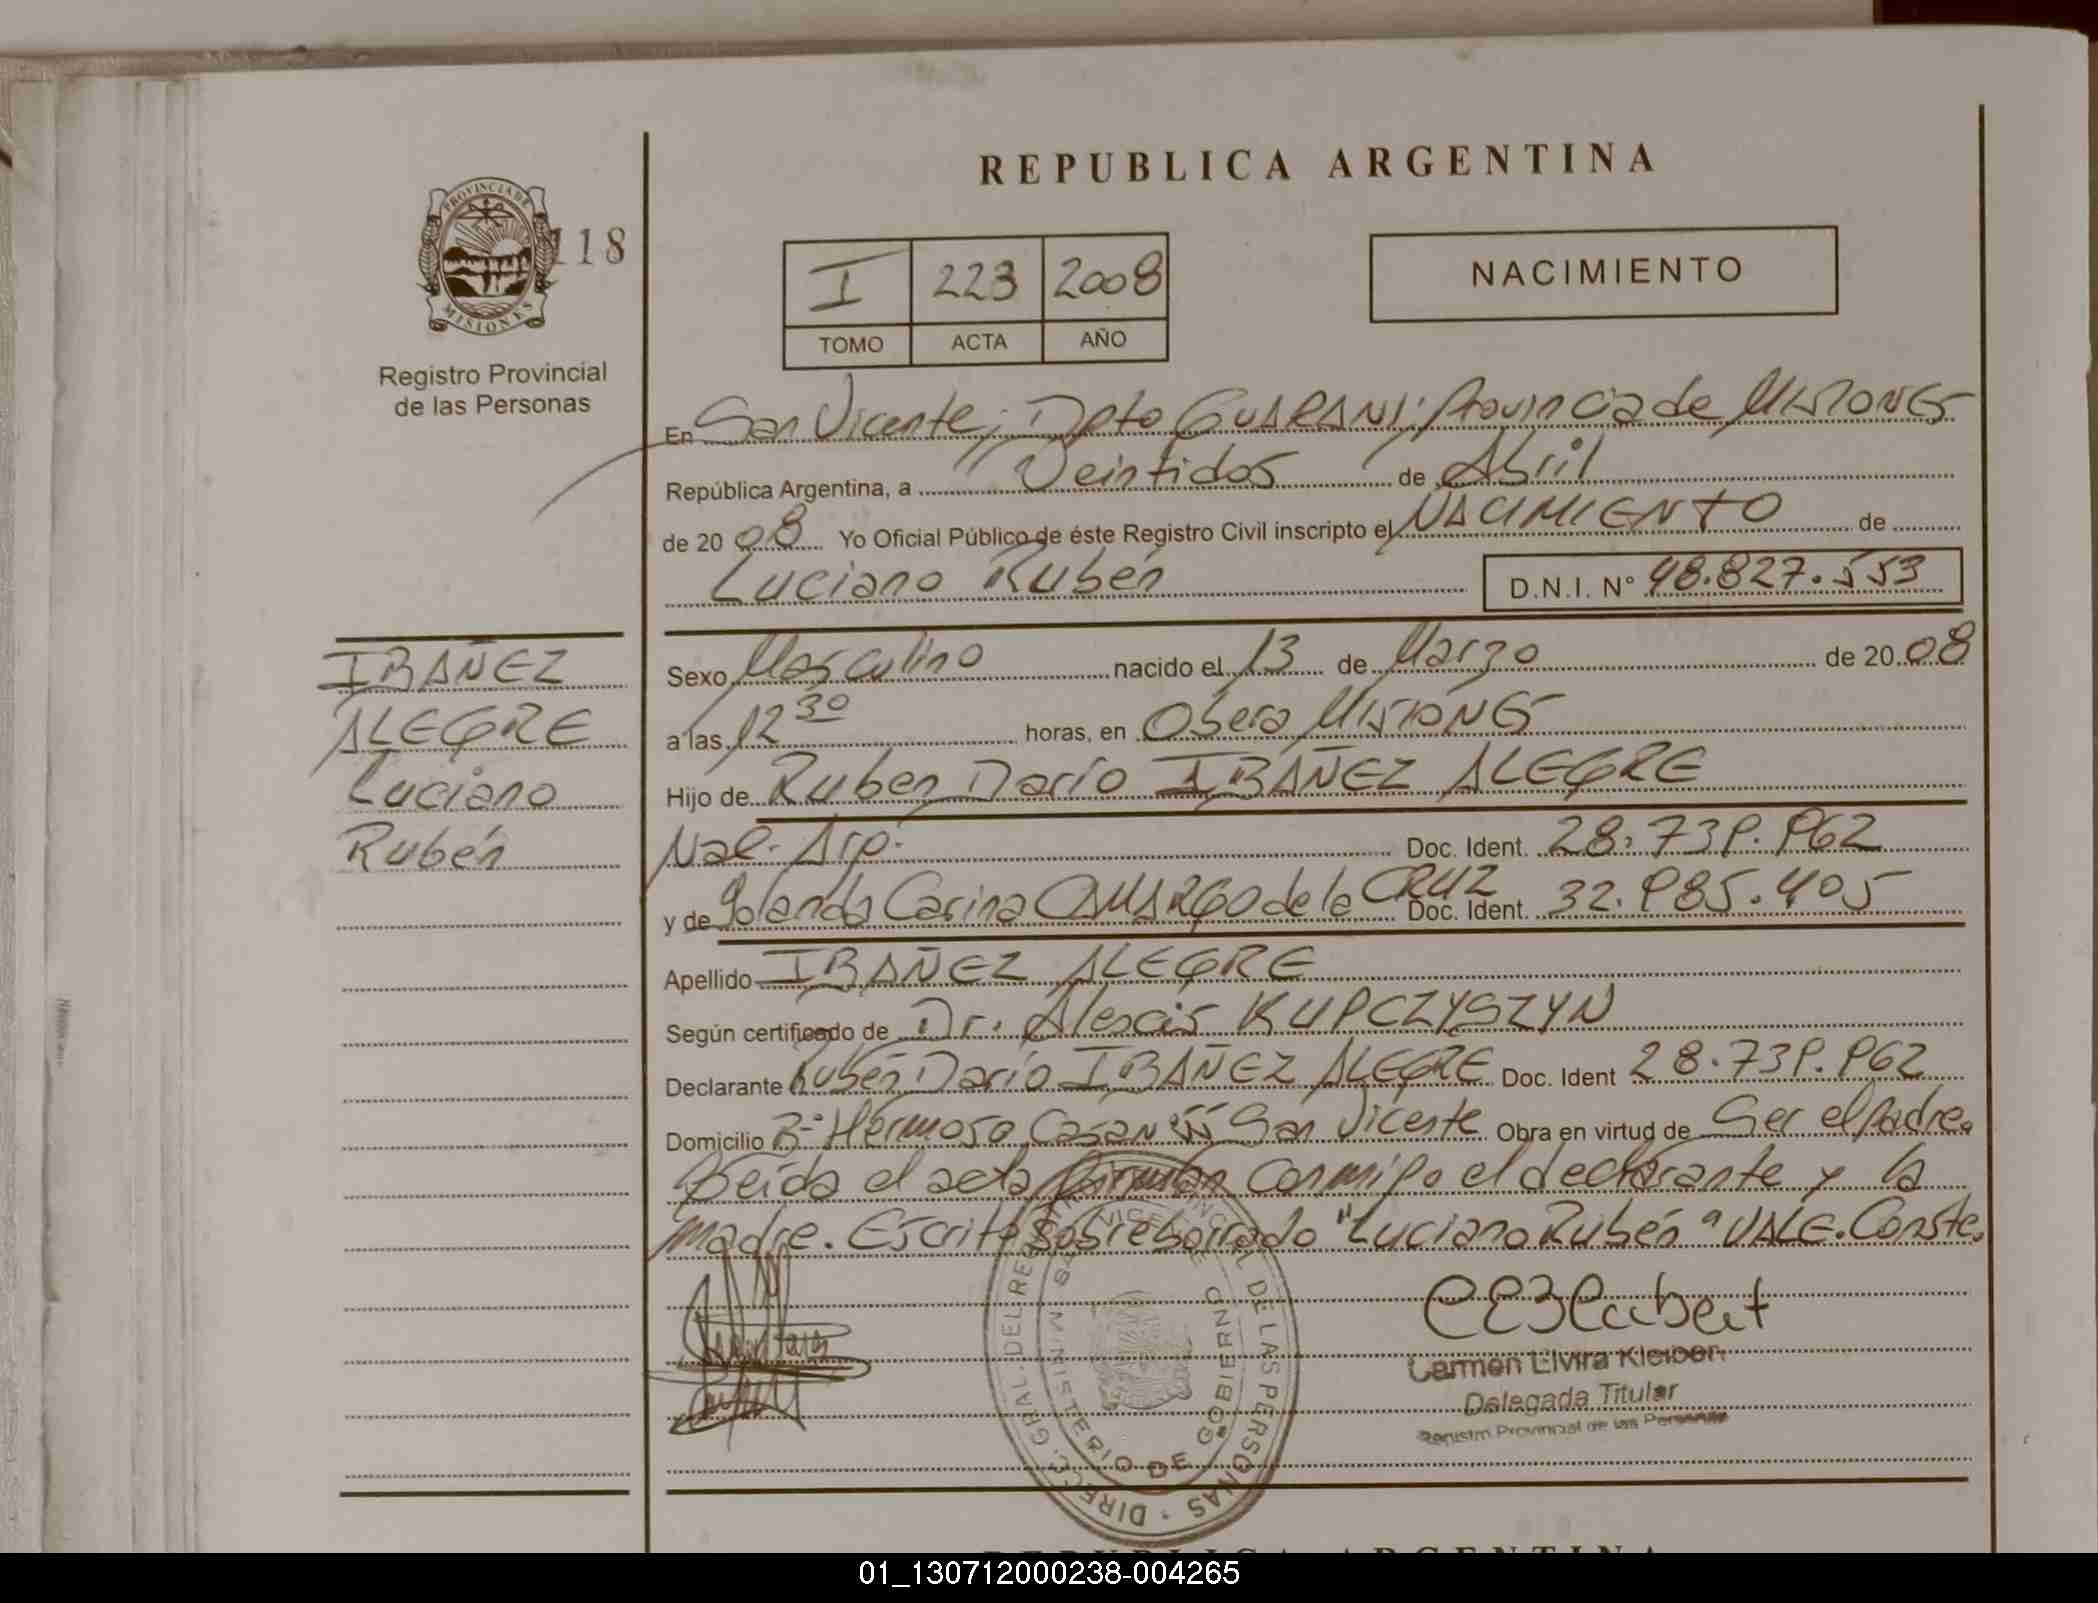 REPUBLICA ARGENTINA
PROVINCIA DE
MISIONES
118
Registro Provincial
de las Personas
I 223 2008
TOMO ACTA AÑO
NACIMIENTO
En San Vicente; Dpto GUARANI; Provincia de MISIONES
República Argentina, a Veintidos de Abril
de 2008 Yo Oficial Público de éste Registro Civil inscripto el NACIMIENTO de
Luciano Rubén D.N.I. N° 48.827.553
IBAÑEZ
ALEGRE
Luciano
Rubén
Sexo Masculino nacido el 13 de Marzo de 2008
a las 12 30 horas, en Obera MISIONES
Hijo de Ruben Darío IBAÑEZ ALEGRE
Nac. Arg. Doc. Ident. 28.739.962
y de Yolanda Carina CAMARGO de la CRUZ Doc. Ident. 32.985.405
Apellido IBAÑEZ ALEGRE
Según certificado de Dr. Alexis KUPCZYSZYN
Declarante Rubén Darío IBAÑEZ ALEGRE Doc. Ident 28.739.962
Domicilio Bº Hermoso Casa Nº San Vicente Obra en virtud de Ser el Padre.
Leída el acta firman conmigo el declarante y la
madre. Escrito sobreborrado "Luciano Rubén" VALE. Conste.
Carmen Elvira Kleiben
Delegada Titular
Registro Provincial de las Personas
DIRECC. GRAL. DEL REGISTRO PROVINCIAL DE LAS PERSONAS
MINISTERIO DE GOBIERNO
REPUBLICA ARGENTINA
01_130712000238-004265